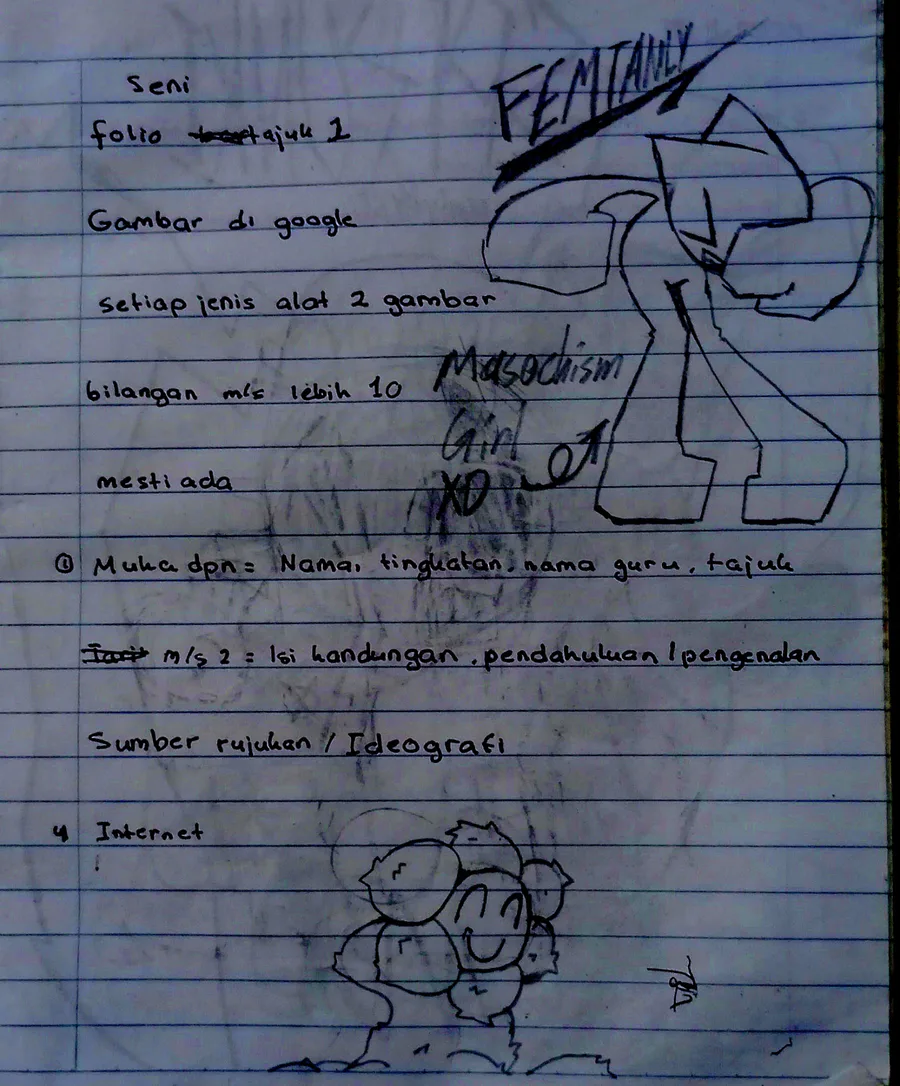 Seni
FEMTANLY
folio tajuk 1
Gambar di google
setiap jenis alat 2 gambar
Masochism
bilangan m/s lebih 10
Girl
mesti ada
XD
① Muka dpn = Nama, tingkatan, nama guru, tajuk
m/s 2 = Isi kandungan, pendahuluan / pengenalan
Sumber rujukan / Ideografi
4 Internet